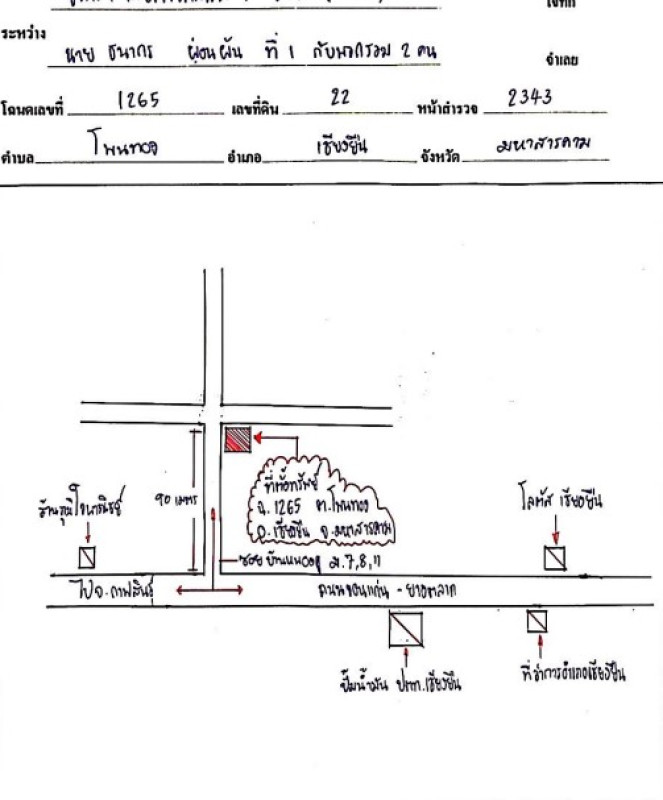 โจทก์
ระหว่าง
นาย ธนากร ผ่อนผัน ที่ 1 กับพวกรวม 2 คน จำเลย
โฉนดเลขที่ 1265 เลขที่ดิน 22 หน้าสำรวจ 2343
ตำบล โพนทอง อำเภอ เชียงยืน จังหวัด มหาสารคาม
90 เมตร
ที่ตั้งทรัพย์
ฉ. 1265 ต.โพนทอง
อ.เชียงยืน จ.มหาสารคาม
ร้านภูมิใจพาณิชย์
โลตัส เชียงยืน
ซอย บ้านหนอง ม.7,8,11
ไป จ.กาฬสินธุ์
ถนนขอนแก่น - ยางตลาด
ปั๊มน้ำมัน ปตท.เชียงยืน
ที่ว่าการอำเภอเชียงยืน